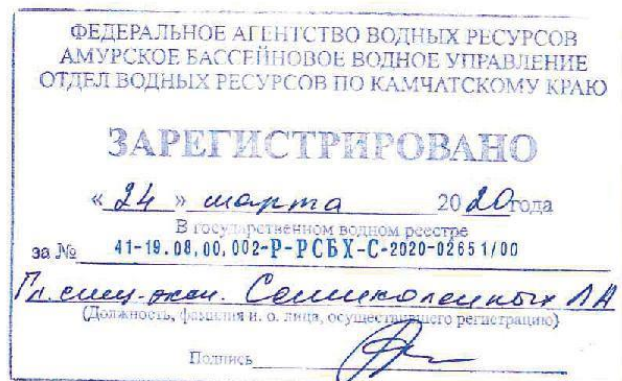 ФЕДЕРАЛЬНОЕ АГЕНТСТВО ВОДНЫХ РЕСУРСОВ
АМУРСКОЕ БАССЕЙНОВОЕ ВОДНОЕ УПРАВЛЕНИЕ
ОТДЕЛ ВОДНЫХ РЕСУРСОВ ПО КАМЧАТСКОМУ КРАЮ
ЗАРЕГИСТРИРОВАНО
« 24 » марта 2020 года
В государственном водном реестре
за № 41-19.08.00.002-Р-РСБХ-С-2020-02651/00
Гл. спец.-эксп. Семиколенных ЛА
(Должность, фамилия и. о. лица, осуществившего регистрацию)
Подпись